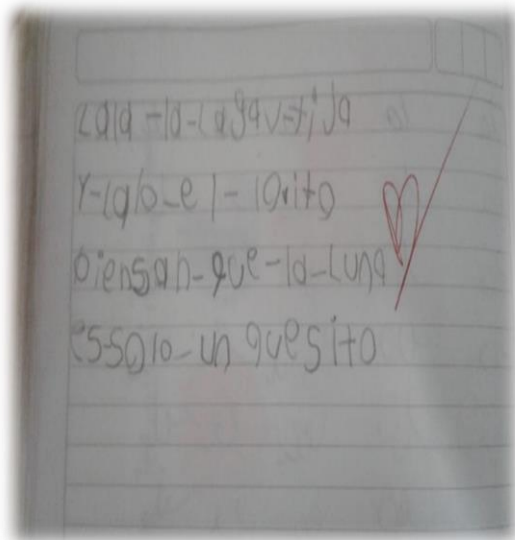 Lala-la-Lagartija
Y-lalo-el-lorito
piensan-que-la-Luna
es-solo-un quesito